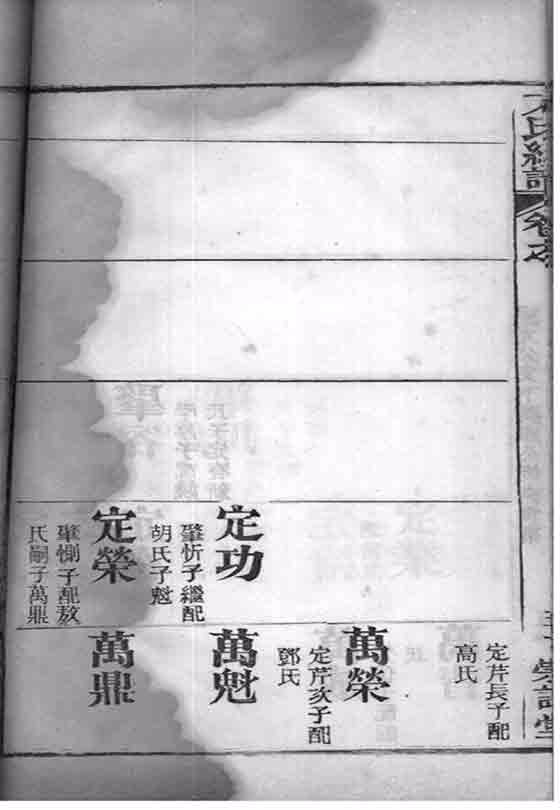 氏續譜
卷
定功
肇忻子繼配
胡氏子魁
定榮
肇惻子配敖
氏嗣子萬鼎
定芹長子配
高氏
萬榮
定芹次子配
鄧氏
萬魁
萬鼎